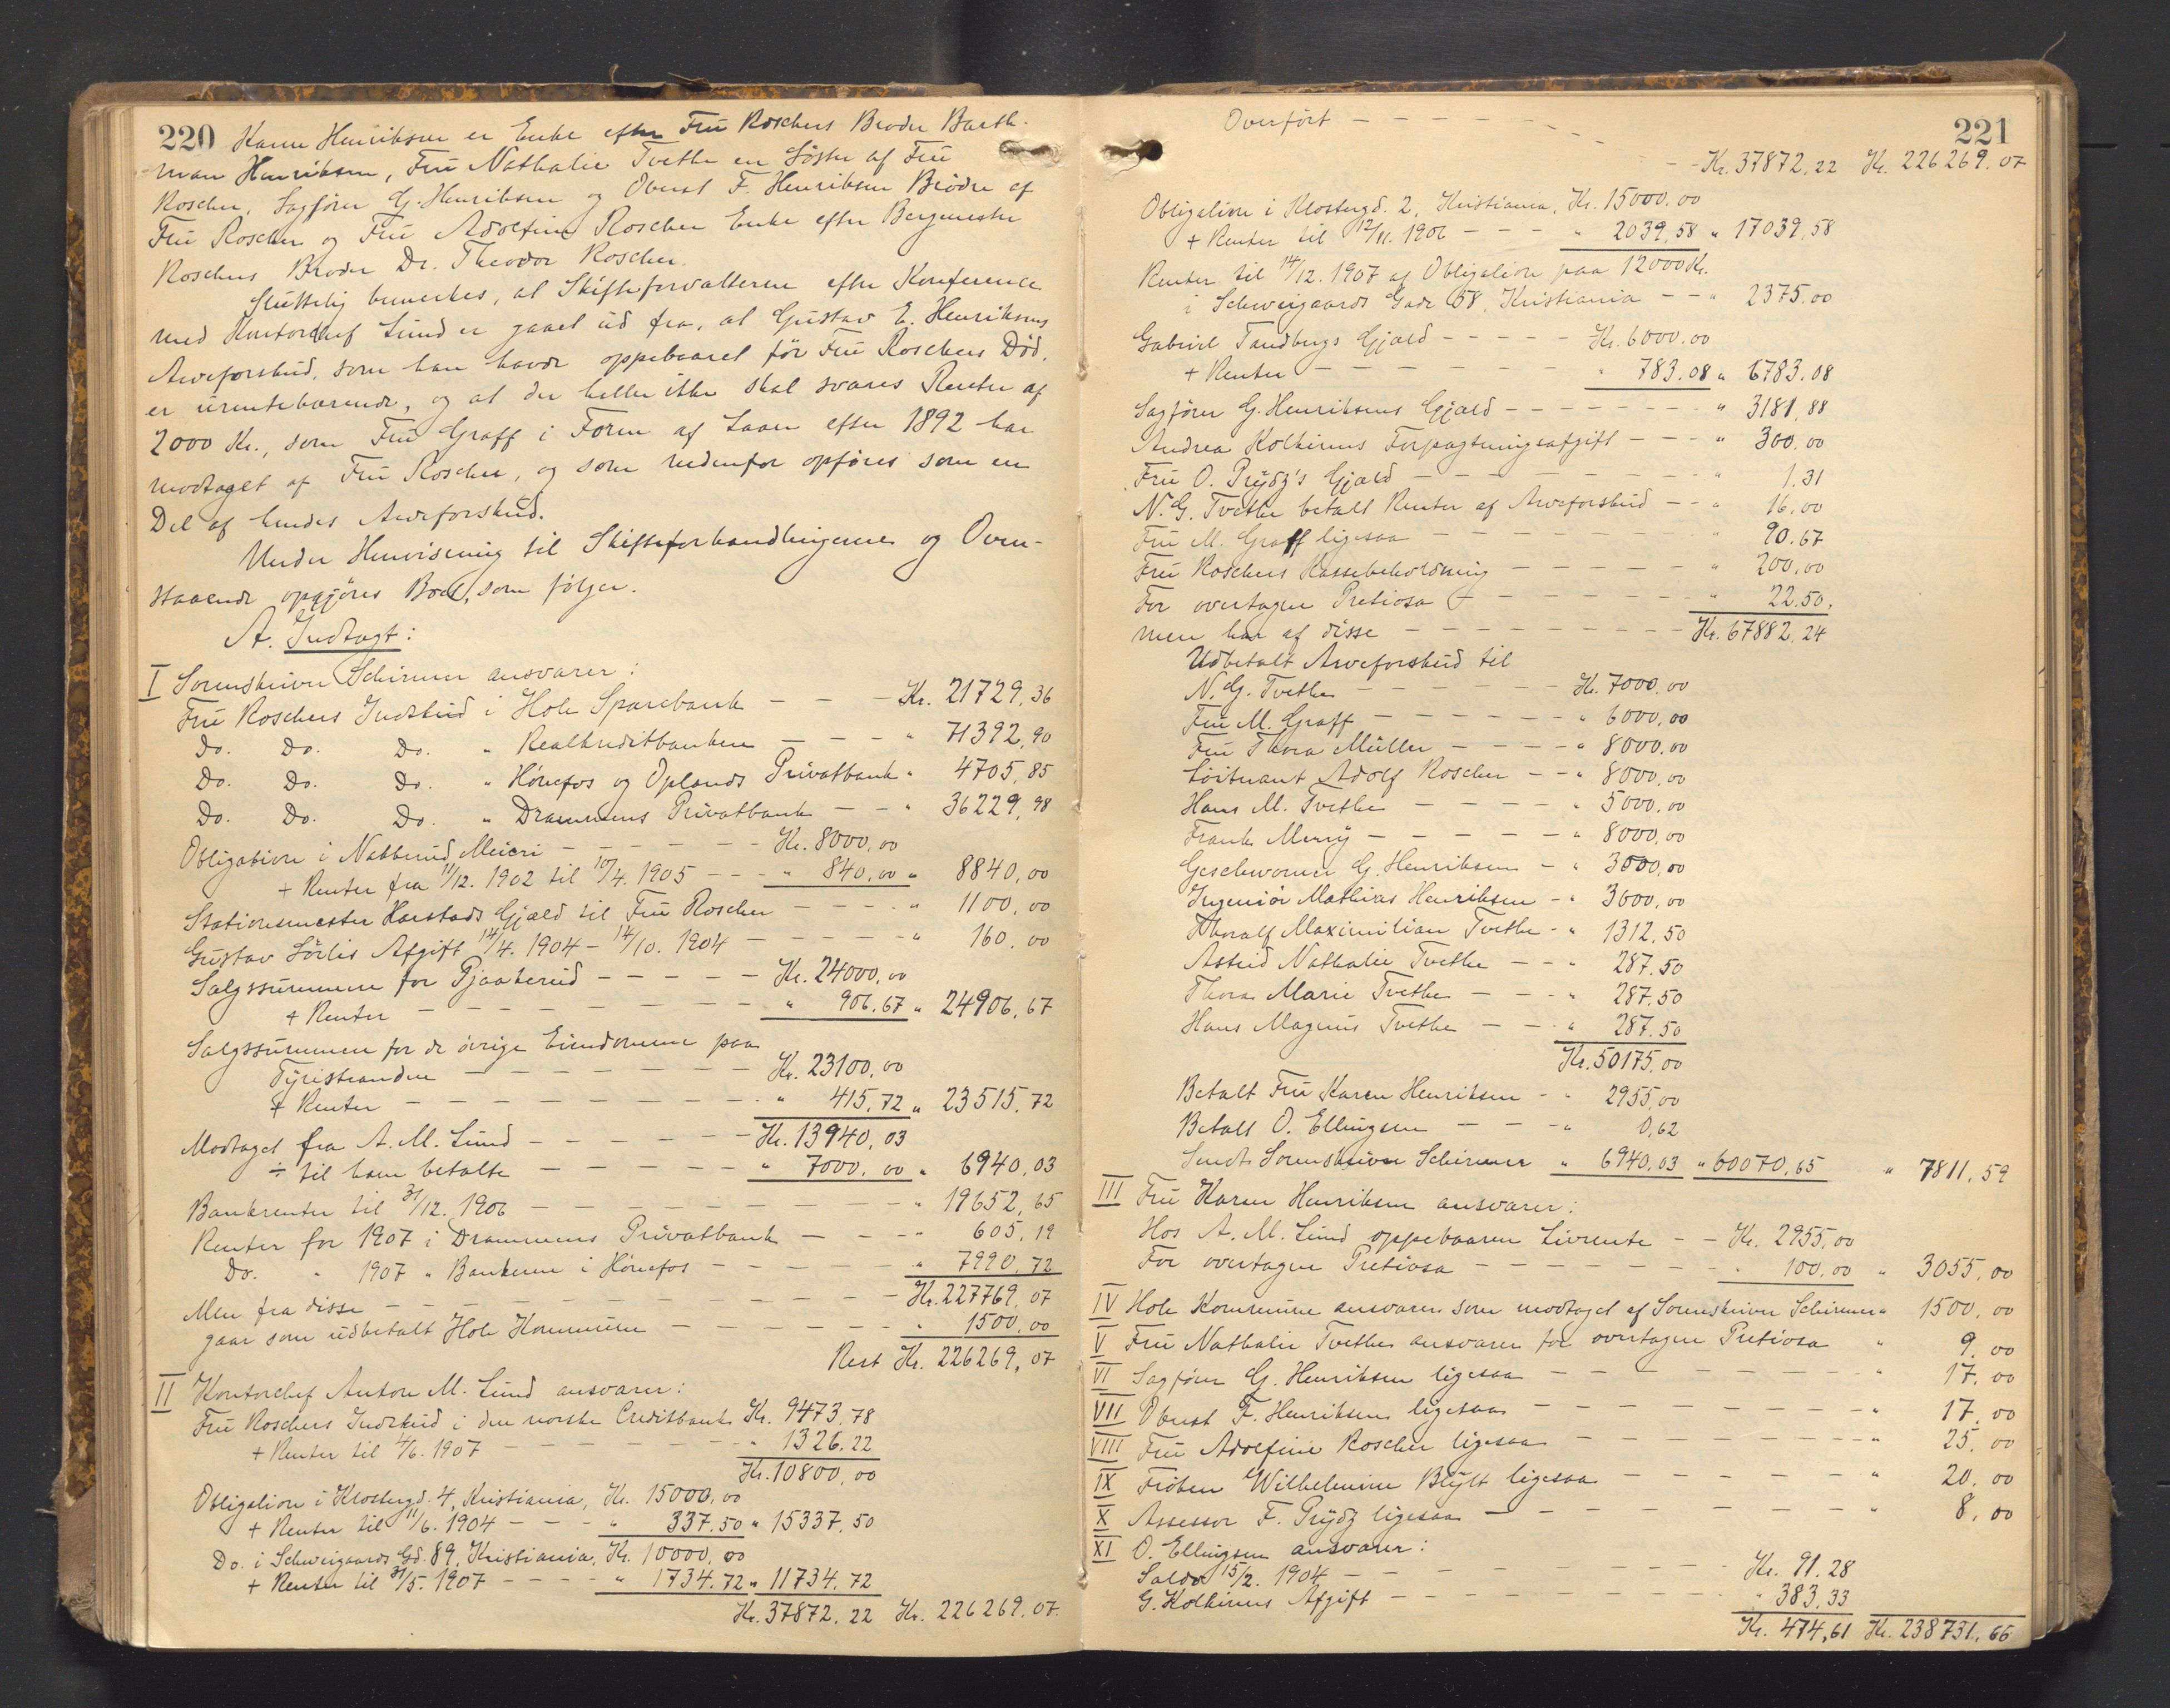 220
Karen Henriksen er Enke efter Frü Roschers Broder Barth-
man Henriksen, Frü Nathalie Tvethe en Söster af Frü
Roscher, Sagfører G. Henriksen og Oberst F. Henriksen Brödre af
Frü Roscher og Frü Adolfine Roscher Enke efter Bergmester
Roschers Broder Dr. Theodor Roscher.
Slüttelig bemerkes, at Skifteforvalteren efter Konference
med Kontorchef Lünd er gaaet üd fra, at Güstav E. Henriksens
Arveforskud, som han havde oppebaaret før Frü Roschers Död,
er ürentebærende, og at der heller ikke skal svares Renter af
2000 Kr., som Frü Graff i Form af Laan efter 1892 har
modtaget af Frü Roscher, og som nedenfor opføres som en
Del af hendes Arveforskud.
Under Henvisning til Skifteforhandlingerne og Oven-
staaende opgjøres Boet, som følger.
A. Indtægt:
I Sorenskriver Schirmer ansvarer:
Frü Roschers Indskud i Hole Sparebank - - - Kr. 21729,36
Do. Do. Do. " Realkreditbanken - - - " 71392,90
Do. Do. Do. " Hönefos og Oplands Privatbank " 4705,85
Do. Do. Do. " Drammens Privatbank - - " 36229,98
Obligation i Natterud Meieri - - - - - - Kr. 8000,00
+ Renter fra 11/12. 1902 til 10/4. 1905 - - - " 840,00 " 8840,00
Stationsmester Harstads Gjæld til Frü Roscher - - - - " 1100,00
Güstav Sörlis Afgift 14/4. 1904 - 14/10. 1904 - - - - - " 160,00
Salgssümmen for Pjaakerud - - - - - Kr. 24000,00
+ Renter - - - - - - - - " 906,67 " 24906,67
Salgssümmen for de övrige Eiendomme paa
Tyristranden - - - - - - - Kr. 23100,00
+ Renter - - - - - - - - " 415,72 " 23515,72
Modtaget fra A. M. Lünd - - - - - Kr. 13940,03
÷ til ham betalte - - - - - - " 7000,00 " 6940,03
Bankrenter til 31/12. 1906 - - - - - - - - - " 19652,65
Renter for 1907 i Drammens Privatbank - - - " 605,19
Do. " 1907 " Bankerne i Hönefos - - - - - " 7990,72
Kr. 227769,07
Men fra disse - - - - - - - - - - -
gaar som üdbetalt Hole Kommüne - - - - - - " 1500,00
Rest Kr. 226269,07
II Kontorchef Anton M. Lünd ansvarer:
Frü Roschers Indskud i den norske Creditbank Kr. 9473,78
+ Renter til 4/6. 1907 - - - - - - - " 1326,22
Kr. 10800,00
Obligation i Klostergd. 4, Kristiania, Kr. 15000,00
+ Renter til 11/6. 1904 - - - " 337,50 " 15337,50
Do. i Schweigaards Gd. 89, Kristiania, Kr. 10000,00
+ Renter til 31/5. 1907 - - - - " 1734,72 " 11734,72
Kr. 37872,22 Kr. 226269,07.
221
Overfört - - - - - - - - Kr. 37872,22 Kr. 226269,07
Obligation i Klostergd. 2, Kristiania, Kr. 15000,00
+ Renter til 12/11. 1906 - - - " 2039,58 " 17039,58
Renter til 14/12. 1907 af Obligation paa 12000 Kr.
i Schweigaards Gade 58, Kristiania - - " 2375,00
Gabriel Tandbergs Gjæld - - - - - Kr. 6000,00
+ Renter - - - - - - - " 783,08 " 6783,08
Sagfører G. Henriksens Gjæld - - - - - - - - " 3181,88
Andrea Kolkinns Forpagtningsafgift - - - " 300,00
Frü O. Prydz's Gjæld - - - - - - - - " 1.31
N. G. Tvethe betalt Renter af Arveforskud - - " 16,00
Frü M. Graff ligesaa - - - - - - - - " 90.67
Frü Roschers Kassebeholdning - - - - - " 200,00
For overtagne Pretiosa - - - - - - - " 22.50.
men har af disse - - - - - - - - - Kr. 67882.24
Udbetalt Arveforskud til
N. G. Tvethe - - - - - - Kr. 7000.00
Frü M. Graff - - - - - - " 6000,00
Frü Thora Müller - - - - " 8000.00
Löitnant Adolf Roscher - - " 8000,00
Hans M. Tvethe - - - - - " 5000,00
Frank Merry - - - - - - " 8000,00
Geschworner G. Henriksen - " 3000,00
Ingeniör Mathias Henriksen - " 3000,00
Thoralf Maximilian Tvethe - " 1312.50
Astrid Nathalie Tvethe - - " 287.50
Thora Marie Tvethe - - - " 287.50
Hans Magnus Tvethe - - - " 287.50
Kr. 50175,00
Betalt Frü Karen Henriksen - " 2955,00
Betalt O. Ellingsen - - - " 0,62
Sendt Sorenskriver Schirmer " 6940,03 " 60070,65 " 7811,59
III Frü Karen Henriksen ansvarer:
Hos A. M. Lünd oppebaaren Livrente - - Kr. 2955,00
For overtagne Pretiosa - - - - - - - " 100,00 " 3055,00
IV Hole Kommüne ansvarer som modtaget af Sorenskriver Schirmer " 1500,00
V Frü Nathalie Tvethe ansvarer for overtagne Pretiosa " 9,00
VI Sagfører G. Henriksen ligesaa - - - - - - - - " 17,00
VII Oberst F. Henriksen ligesaa - - - - - - - - " 17,00
VIII Frü Adolfine Roscher ligesaa - - - - - - - - " 25,00
IX Fröken Wilhelmine Blytt ligesaa - - - - - - " 20,00
X Assessor F. Prydz ligesaa - - - - - - - - - " 8,00
XI O. Ellingsen ansvarer:
Saldo 15/2. 1904 - - - - - - - - - Kr. 91.28
G. Kolkinns Afgift - - - - - - - - - " 383,33
Kr. 474,61 Kr. 238731,66